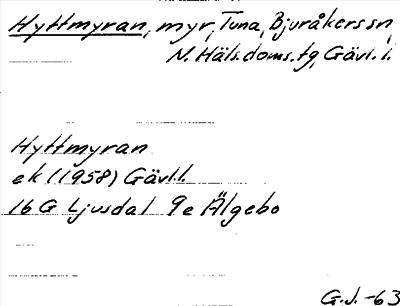 Hyttmyran, myr, Tuna, Bjuråkers sn,
N. Häls. doms. tg, Gävl. l.
Hyttmyran
ek (1958) Gävl.l.
16 G Ljusdal 9e Älgebo
G.J. -63